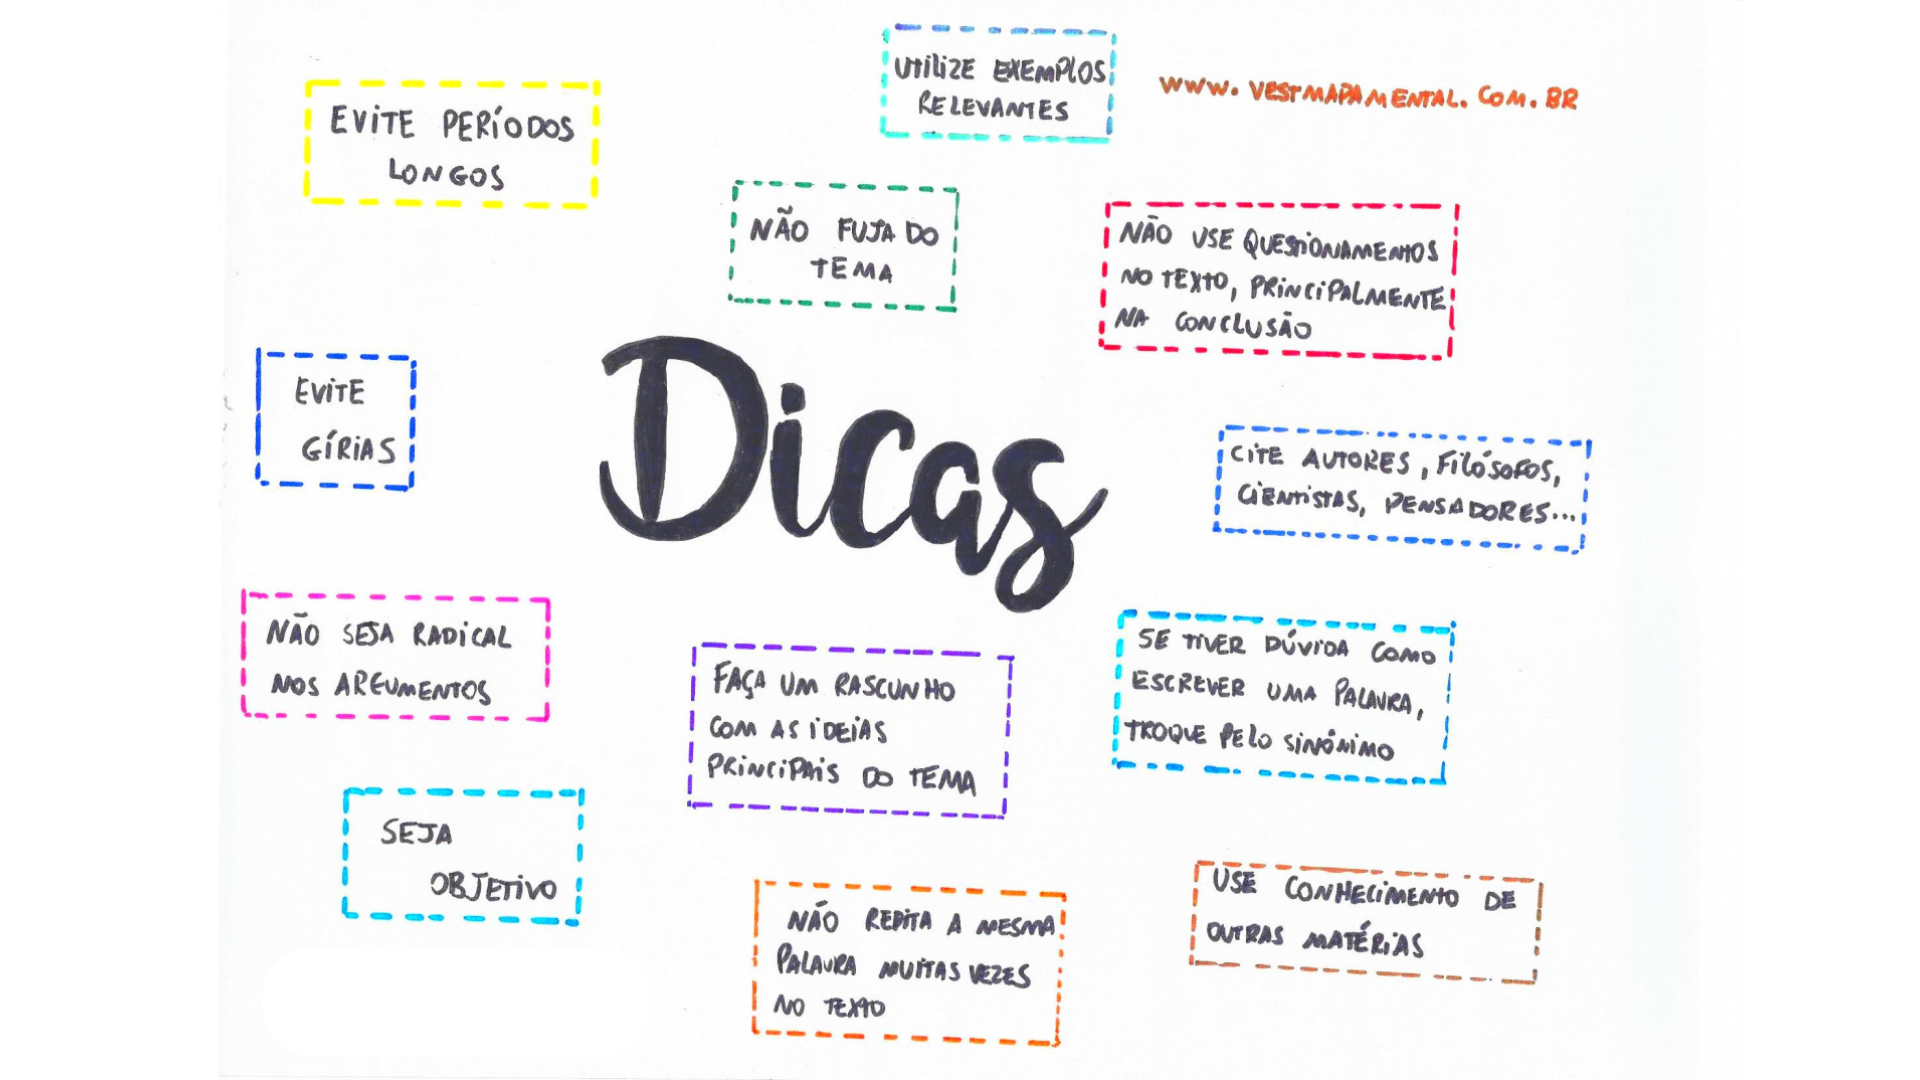 UTILIZE EXEMPLOS
RELEVANTES
WWW. VESTMAPAMENTAL. COM. BR
EVITE PERÍODOS
LONGOS
NÃO FUJA DO
TEMA
NÃO USE QUESTIONAMENTOS
NO TEXTO, PRINCIPALMENTE
NA CONCLUSÃO
EVITE
GÍRIAS
Dicas
CITE AUTORES, FILÓSOFOS,
CIENTISTAS, PENSADORES...
NÃO SEJA RADICAL
NOS ARGUMENTOS
FAÇA UM RASCUNHO
COM AS IDEIAS
PRINCIPAIS DO TEMA
SE TIVER DÚVIDA COMO
ESCREVER UMA PALAVRA,
TROQUE PELO SINÔNIMO
SEJA
OBJETIVO
NÃO REPITA A MESMA
PALAVRA MUITAS VEZES
NO TEXTO
USE CONHECIMENTO DE
OUTRAS MATÉRIAS